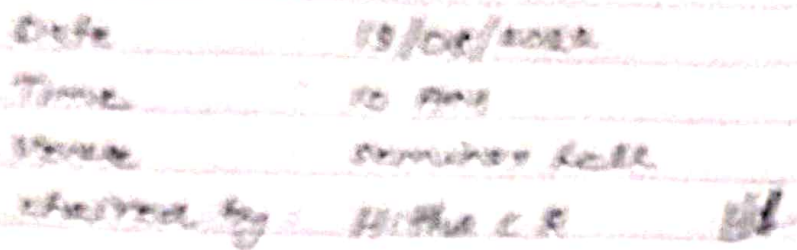 Date 19/08/2022
Time 10 AM
Venue Seminar Hall
Chaired by Hitha C R